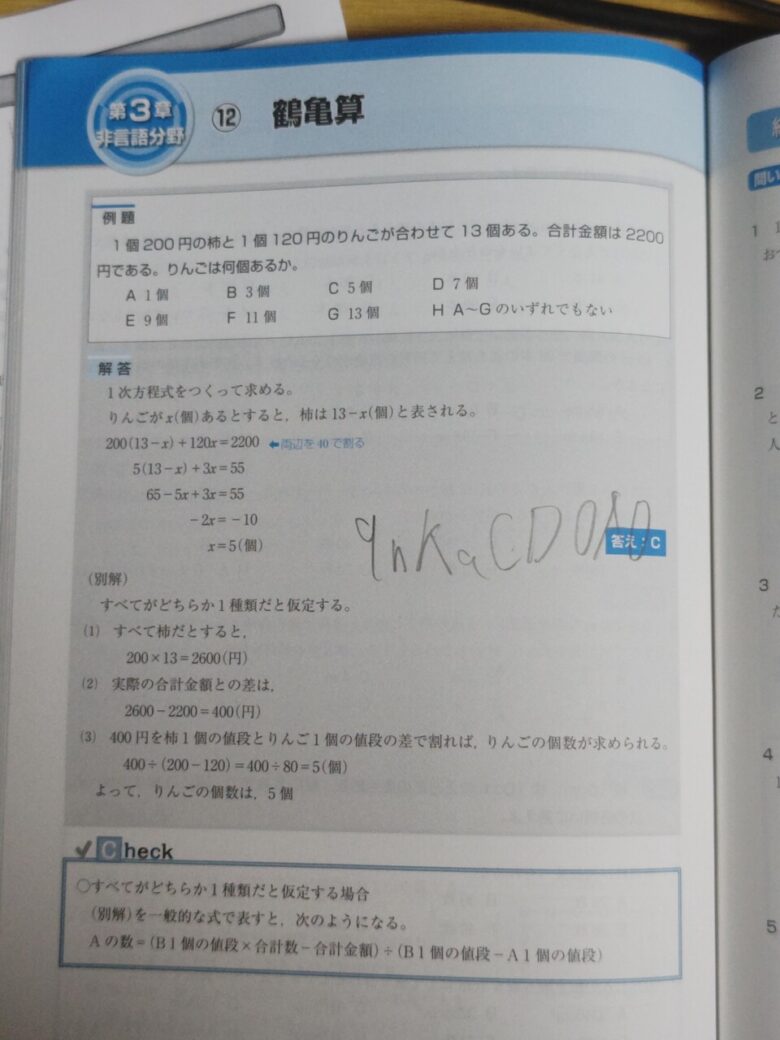 第3章
非言語分野
⑫ 鶴亀算
例題
1個200円の柿と1個120円のりんごが合わせて13個ある。合計金額は2200
円である。りんごは何個あるか。
A 1個 B 3個 C 5個 D 7個
E 9個 F 11個 G 13個 H A〜Gのいずれでもない
解答
1次方程式をつくって求める。
りんごがx(個)あるとすると，柿は13−x(個)と表される。
200(13−x)+120x=2200 ←両辺を40で割る
5(13−x)+3x=55
65−5x+3x=55
−2x=−10
x=5(個)
答え：C
(別解)
すべてがどちらか1種類だと仮定する。
(1) すべて柿だとすると，
200×13=2600(円)
(2) 実際の合計金額との差は，
2600−2200=400(円)
(3) 400円を柿1個の値段とりんご1個の値段の差で割れば，りんごの個数が求められる。
400÷(200−120)=400÷80=5(個)
よって，りんごの個数は，5個
Check
○すべてがどちらか1種類だと仮定する場合
(別解)を一般的な式で表すと，次のようになる。
Aの数=(B1個の値段×合計数−合計金額)÷(B1個の値段−A1個の値段)
問い
1
2
と
人
3
4
5